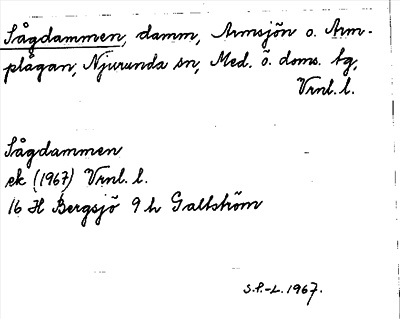 Sågdammen, damm, Armsjön o. Arm-
plågan, Njurunda sn, Med. ö. doms. tg,
Vrnl. l.
Sågdammen
ek (1967) Vrnl. l.
16 H Bergsjö 9 h Galtström
S.P.-L. 1967.